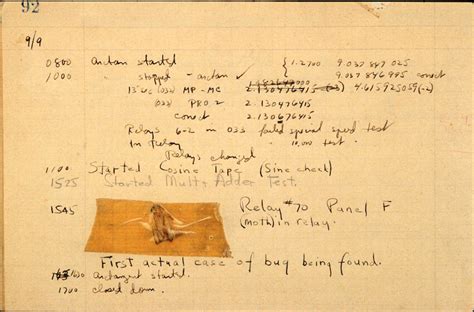 92
9/9
0800 Antan started { 1.2700 9.037 847 025
1000 " stopped - antan ✓ 9.037 846 995 conect
13"00 (032) MP - MC 2.130476415 4.615925059(-2)
(033) PRO 2 2.130476415
conect 2.130676415
Relays 6-2 in 033 failed special speed test
In Relay " 10,000 test.
Relays changed
1100 Started Cosine Tape (Sine check)
1525 Started Mult+Adder Test.
1545 Relay #70 Panel F
(moth) in relay.
First actual case of bug being found.
1630 antangent started.
1700 closed down.